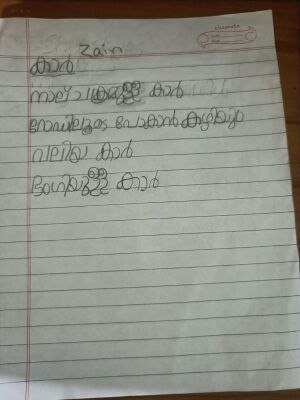 classmate
Zain
കാർ
നാല് ചക്രമുള്ള കാർ
റോഡിലൂടെ പോകാൻ കഴിയും
വലിയ കാർ
ഭംഗിയുള്ള കാർ